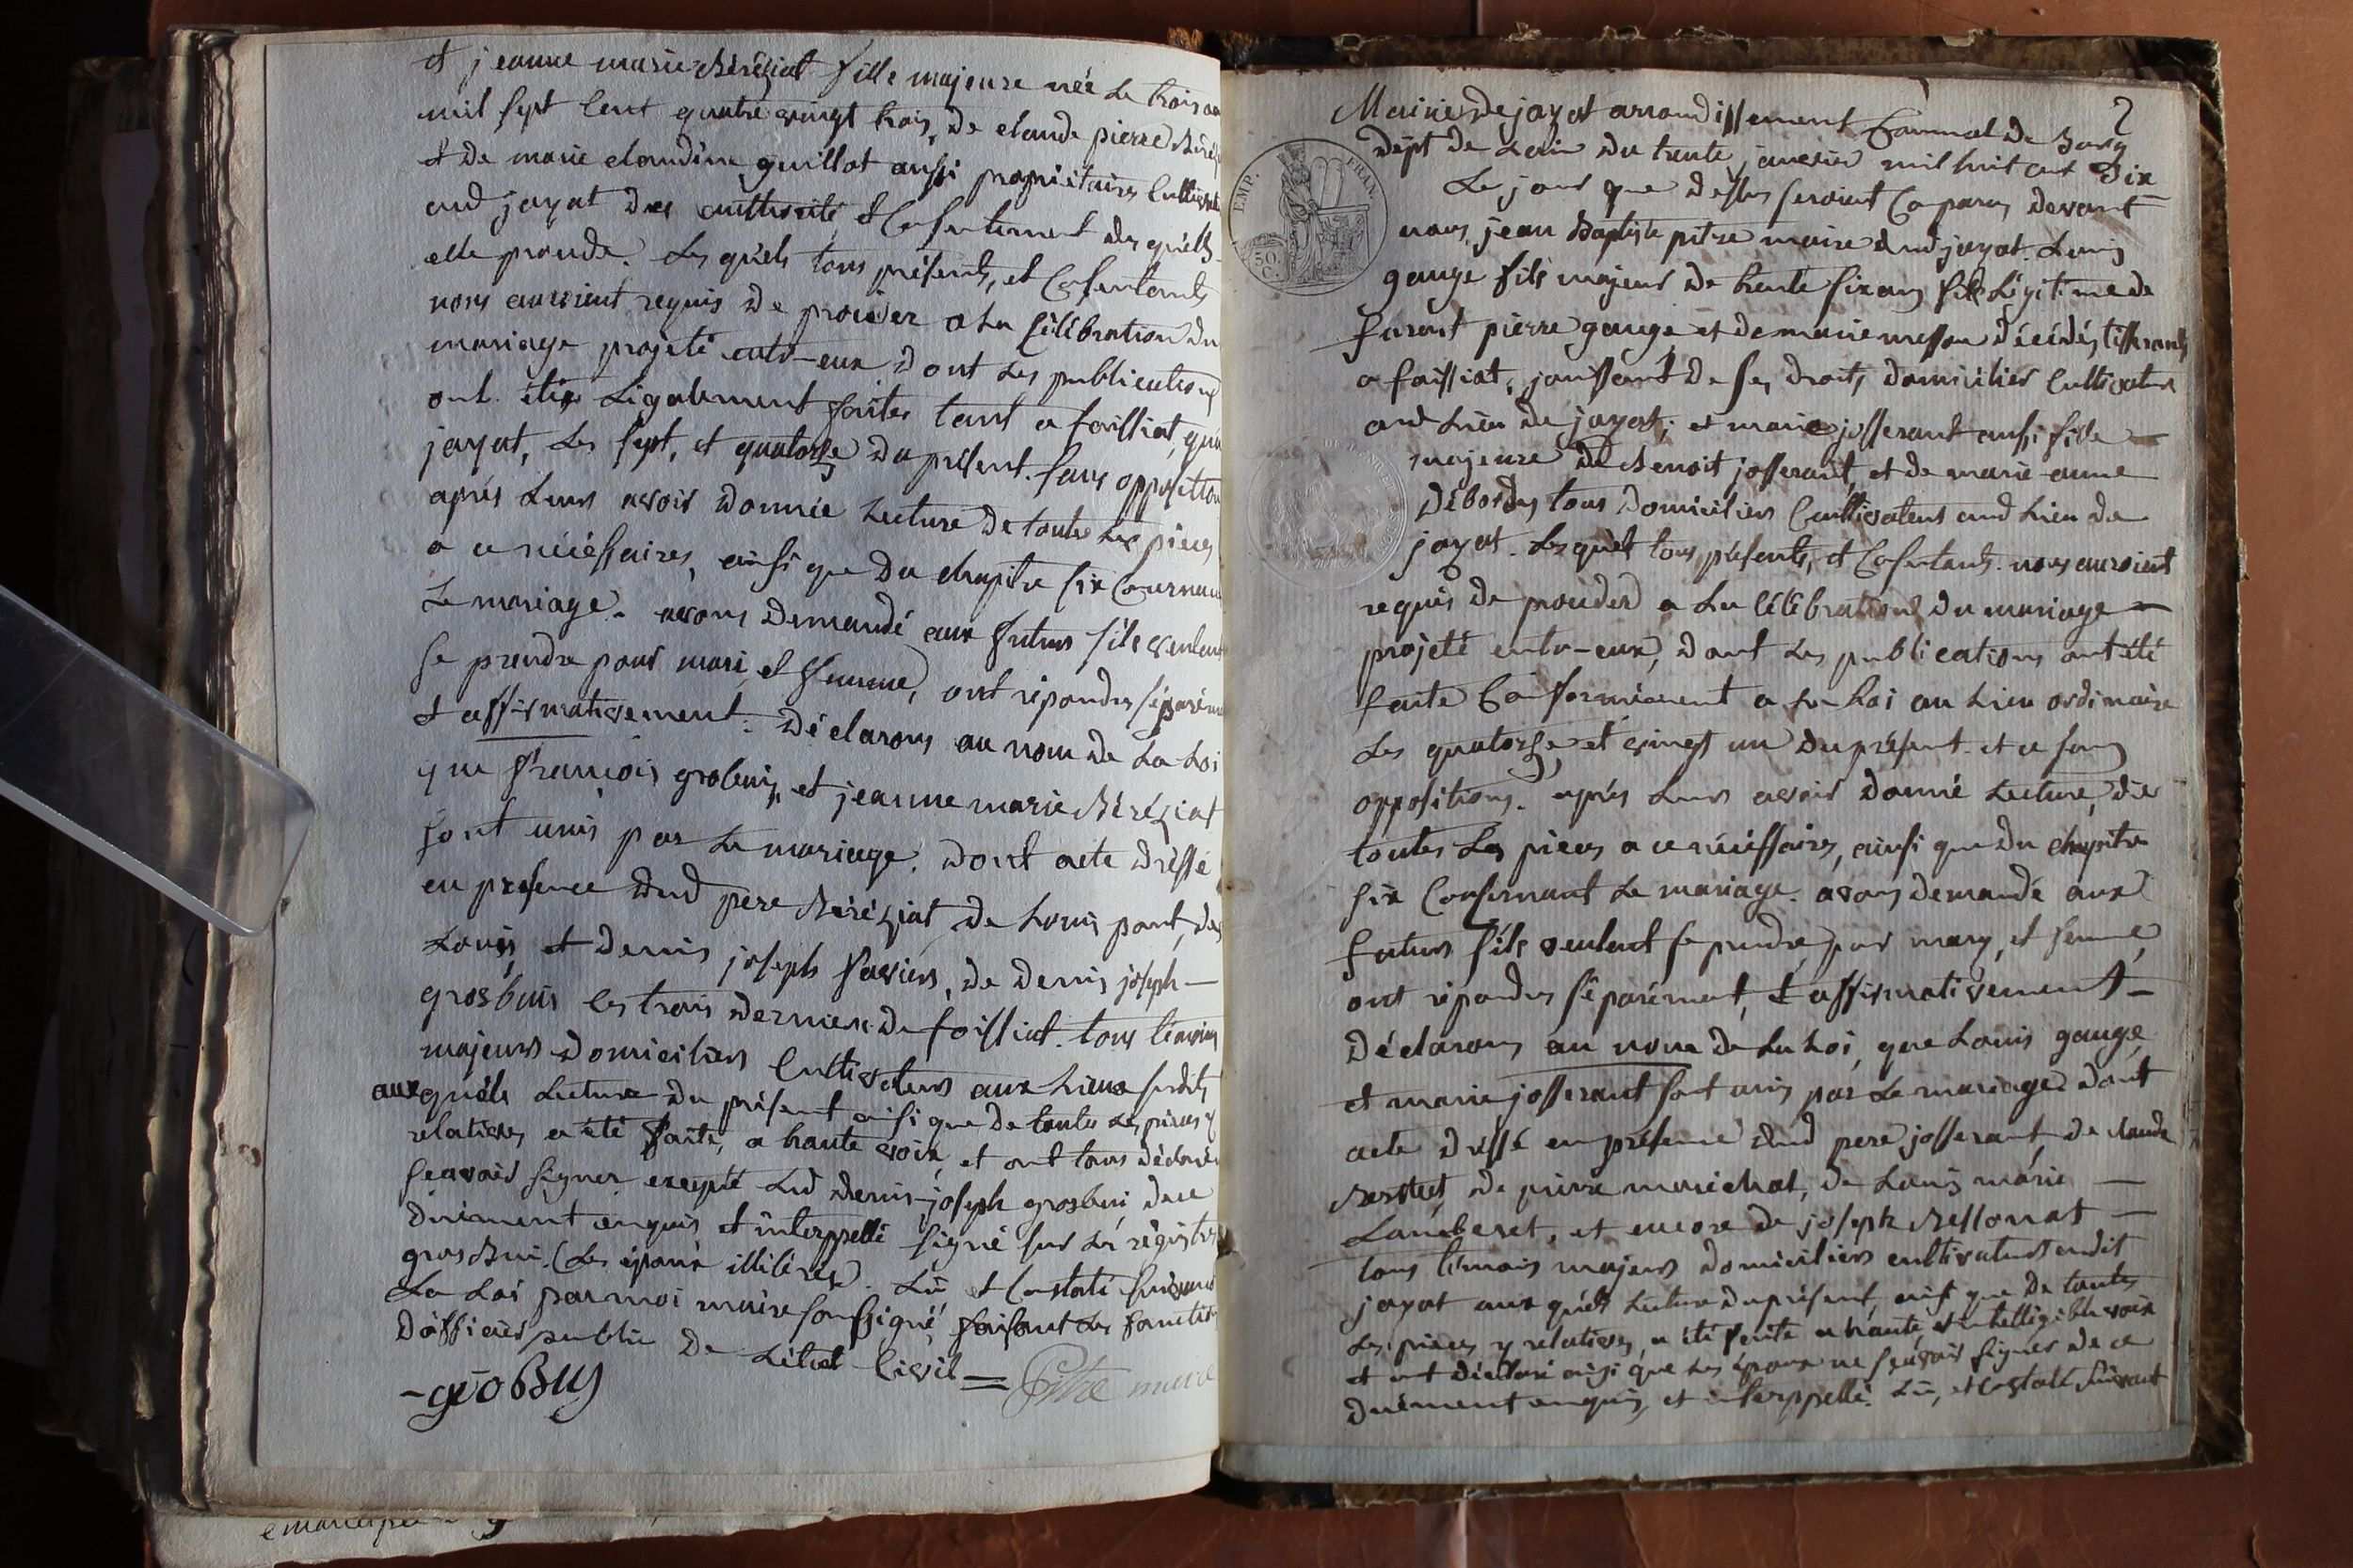 et jeanne marie Béréziat fille majeure née Le trois
mil sept Cent quatre vingt trois, De claude pierre
et De marie claudine guillot aussi propriétaires
aud jayat Des authorité et Consentement des quels
elle procède. Les quels tous présents, et Consentants
nous auroient requis De procéder a La Célébration du
mariage projeté entr-eux Dont Les publications
ont étés Légalement faites tant a foissiat, qu'a
jayat, Les sept, et quatorze Du présent. sans opposition
après Leurs avoir Donnée Lecture De toutes Les pièces
a ce nécéssaires, ainsi que Du chapitre six Concernant
Le mariage. avons Demandé aux futurs s'ils veulent
se prendre pour mari et femme, ont répondus séparément
et affirmativement: Déclarons au nom De La Loi
que françois grobuis, et jeanne marie Béréziat
sont unis par Le mariage. Dont acte Dressé
en présence Dud pere Béréziat De Louis pont, de
Louis, et Denis joseph favier, De Denis joseph —
grosbuis les trois Derniers De foissiat. tous témoins
majeurs Domiciliers Cultivateurs aux Lieux susdits
auxquels Lecture Du présent ainsi que De toutes Les pièces y
relatives a été faite, a haute voix, et ont tous Déclarés
sçavoir signer excepté Led Denis-joseph grosbui De ce
Duement enquis et interppellé signé sur Les régistres
gros Bui. (Les époux illitérés). Lû et Constaté suivant
La Loi par moi maire soussigné, faisant Les fonctions
D'officier public De L'état Civil =
- groBuy Pitre maire
EMP. FRAN.
50. C.
2
Mairie De jayat arrondissement Communal De Bourg
Dépt De Lain Du trente janvier mil huit cent Dix
Le jour que Dessus seroient Comparus Devant
nous, jean Baptiste pitre maire dud jayat. Louis
gauge fils majeur De trente six ans fils Légitime de
furent pierre gauge et de marie messon Décédés tisserands
a foissiat, jouissant De ses Droits Domicilier Cultivateur
aud Lieu De jayat; et marie josserant aussi fille —
majeure De Benoit josserant, et de marie-anne
Débordes tous Domiciliers Cultivateurs aud Lieu De
jayat. Lesquels tous présents, et Consentants. nous auroient
requis De procéder a La Célébration Du mariage —
projeté entr-eux, Dont Les publications ont été
faite Conformément a La Loi au Lieu ordinaire
Les quatorze, et vingt un Du présent. et ce sans
oppositions. après Leurs avoir Donné Lecture, de
toutes Les pièces a ce nécéssaires, ainsi que Du chapitre
six Consernant Le mariage. avons Demandé aux
futurs s'ils veulent se prendre, pour mary, et femme,
ont répondus séparémant, et affirmativement —
Déclarons au nom De La Loi, que Louis gauge,
et marie josserant sont unis par Le mariage Dont
acte Dressé en présence Dud pere josserant, De claude
De pierre marichal, De Louis marie —
Lamberet, et encore De joseph Bellonat —
tous témois majeurs Domiciliers cultivateurs audit
jayat aux quels Lecture Du présent, ainsi que De toutes
Les pièces y relatives, a été faite a haute, et intelligible voix
et ont Déclaré ainsi que Les époux ne sçavoir signer De ce
Duement enquis, et interppellé. Lû, et Constaté suivant